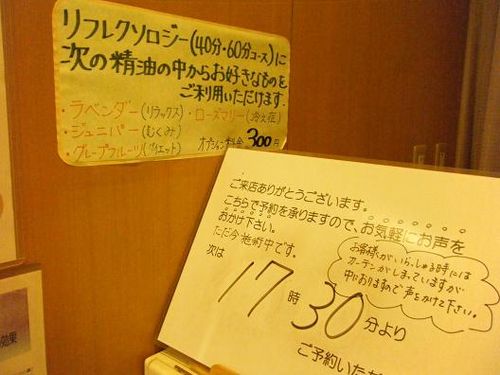 リフレクソロジー(40分・60分コース)に
次の精油の中からお好きなものを
ご利用いただけます.
・ラベンダー(リラックス)・ローズマリー(冷え症)
・ジュニパー(むくみ)
・グレープフルーツ(ダイエット) オプション料金 300円
ご来店ありがとうございます。
こちらで予約を承りますので、お気軽にお声を
おかけ下さい。
ただ今施術中です。
次は
17時30分より
ご予約いただ
お客様がいらっしゃる時には
カーテンがしまっていますが
中におりますので声をかけて下さい。
効果